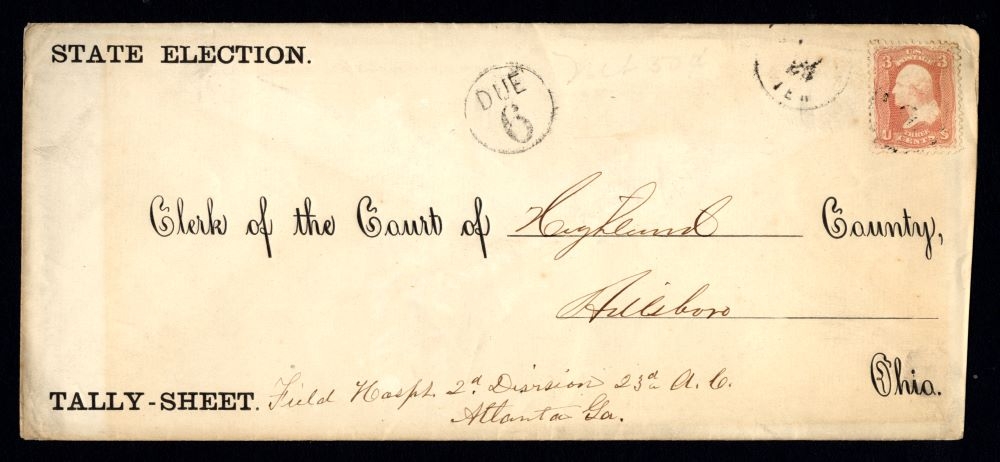 STATE ELECTION.
DUE
6
3 U.S. 3
POSTAGE
THREE
U CENTS S
Clerk of the Court of Highland County,
Hillsboro
Ohio.
TALLY-SHEET. Field Hospt. 2d Division 23d A. C.
Atlanta Ga.